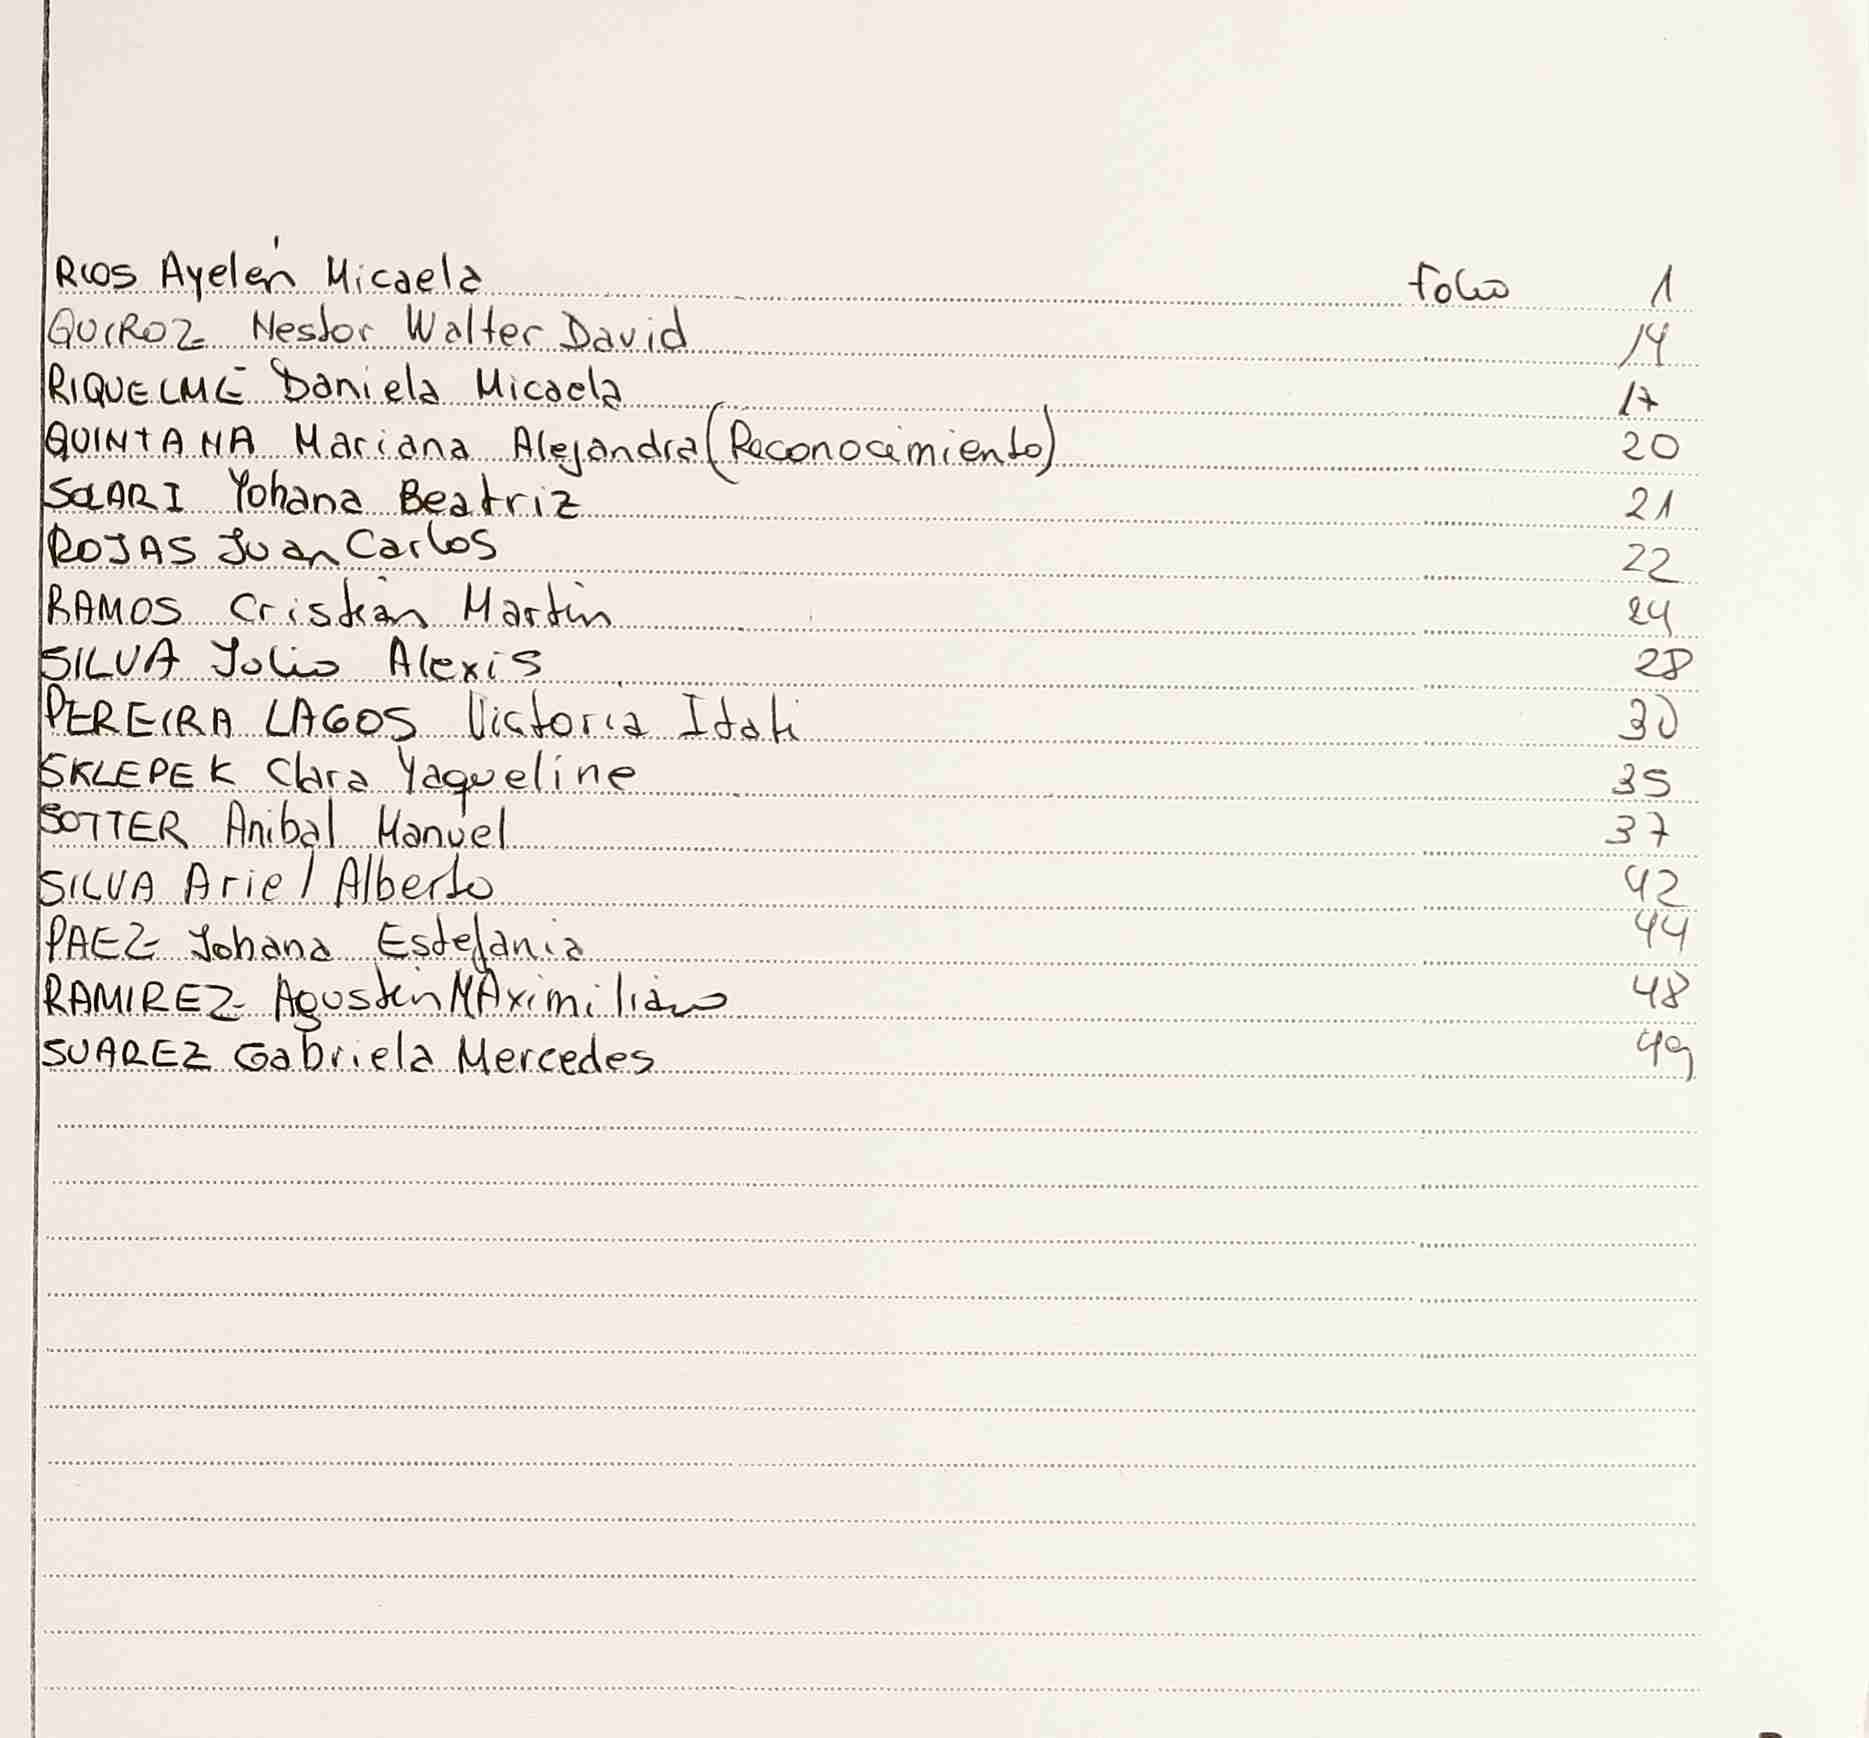 RIOS Ayelén Micaela Folio 1
QUIROZ Nestor Walter David 14
RIQUELME Daniela Micaela 17
QUINTANA Mariana Alejandra (Reconocimiento) 20
SOLARI Yohana Beatriz 21
ROJAS Juan Carlos 22
RAMOS Cristian Martin 24
SILVA Julio Alexis 28
PEREIRA LAGOS Victoria Itati 30
SKLEPEK Clara Yaqueline 35
SOTTER Anibal Manuel 37
SILVA Ariel Alberto 42
PAEZ Johana Estefania 44
RAMIREZ Agustin MAximiliano 48
SUAREZ Gabriela Mercedes 49